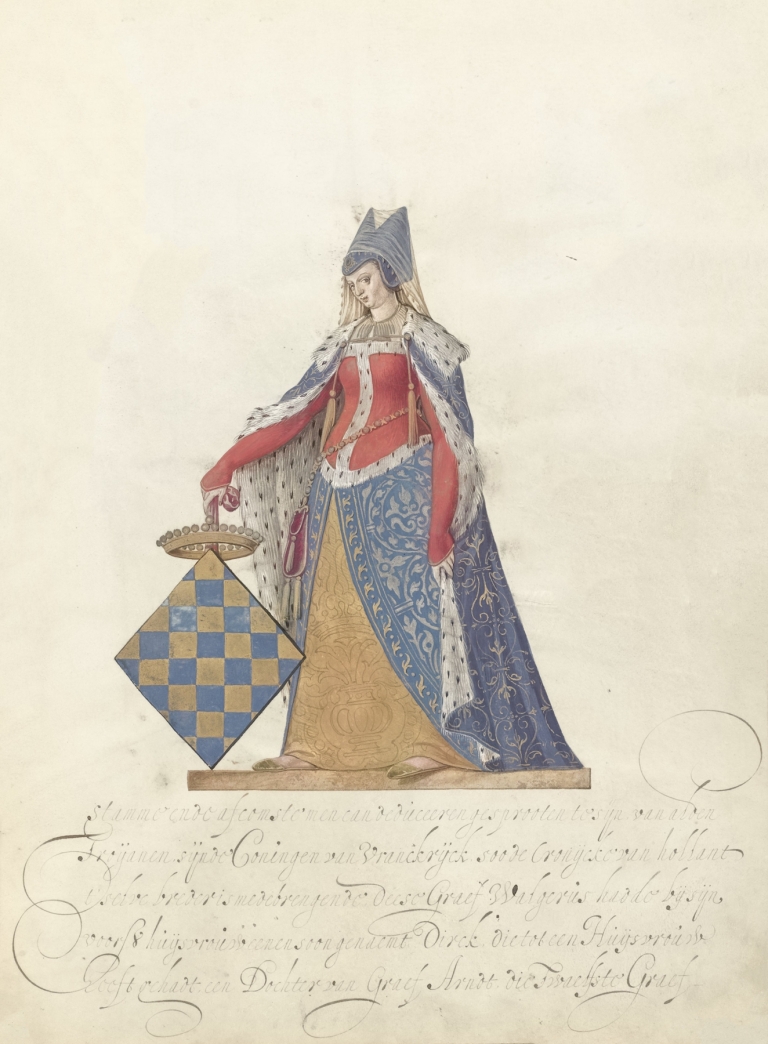 stamme ende afcomste men can deduceeren gesprooten te sijn van al den
Troyanen sijnde Coningen van Vranckryck soo de Cronycke van hollant
tselve breder is medebrengende Deese Graef Walgerus hadde by sijn
voors huysvrouwe eenen soon genaemt Dirck die tot een Huysvrouwe
heeft gehadt een Dochter van Graef Arndt die Twaelfste Graef